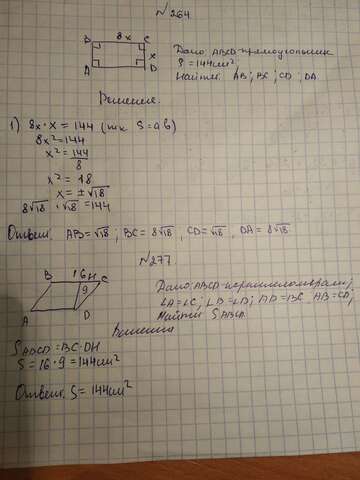 №264
B 8x C
x
A D
Дано: ABCD-прямоугольник
S=144см²
Найти: AB; BC; CD; DA.
Решение.
1) 8x·x=144 (тк S=ab)
8x²=144
x²=144/8
x²=18
x=±√18
8√18·√18=144
Ответ: AB=√18; BC=8√18, CD=√18, DA=8√18.
№277
B 16 H C
9
A D
Дано: ABCD-параллелограмм;
∠A=∠C; ∠B=∠D; AD=BC AB=CD;
Найти SABCD.
Решение
SABCD=BC·DH
S=16·9=144см²
Ответ: S=144см²